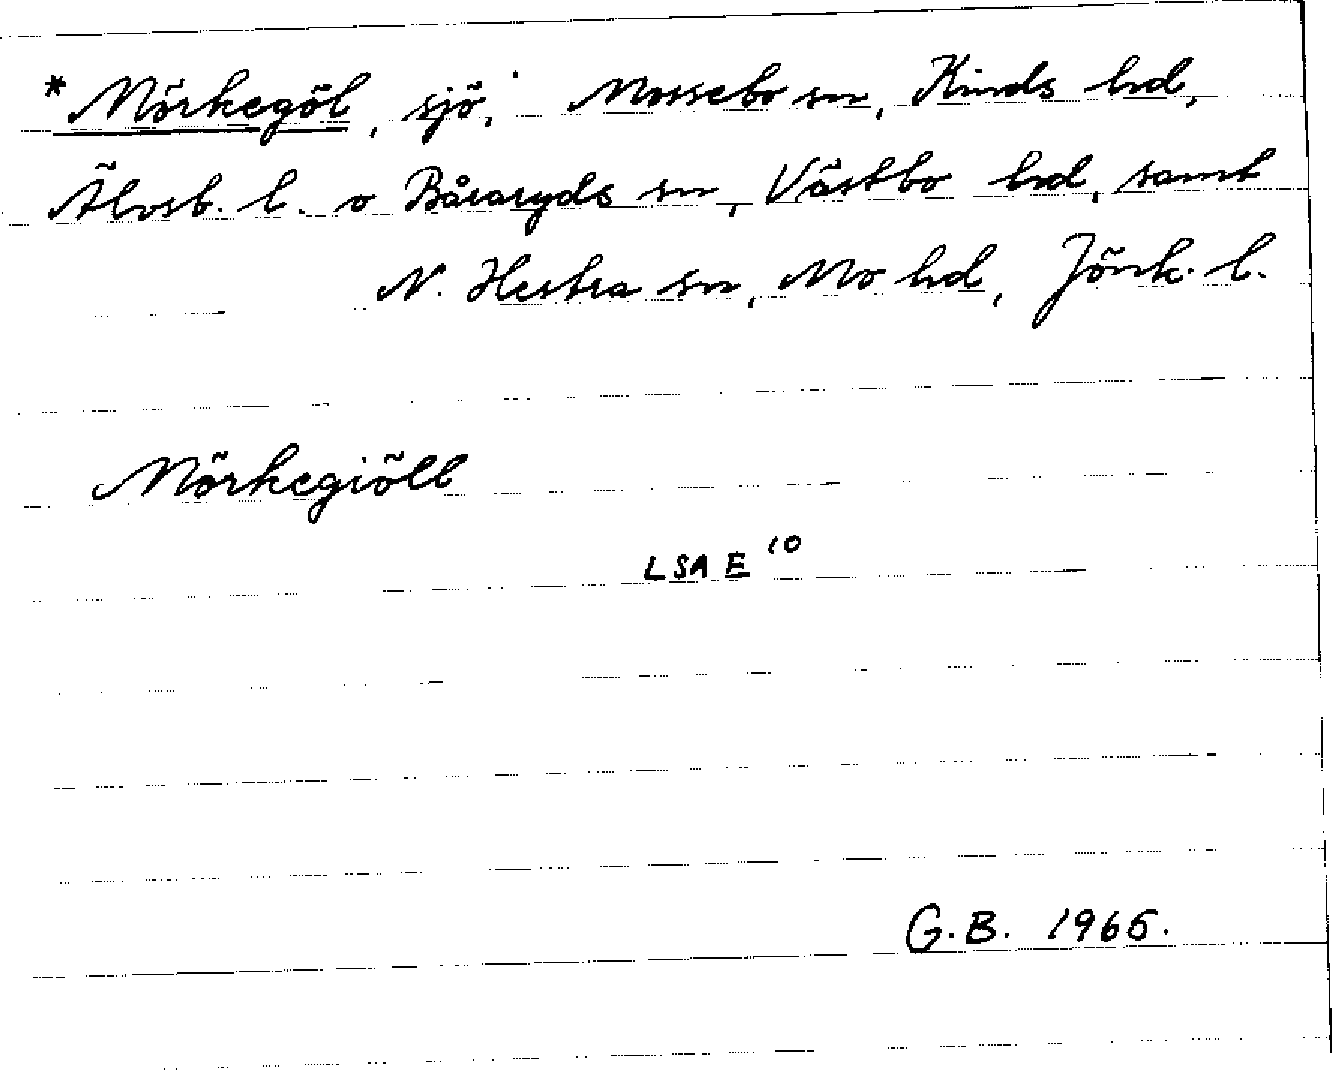 * Mörkegöl, sjö. Mossebo sn, Kinds hd,
Älvsb. l. o Båraryds sn, Västbo hd, samt
N. Hestra sn, Mo hd, Jönk. l.
Mörkegiöll
LSA E 10
G.B. 1965.